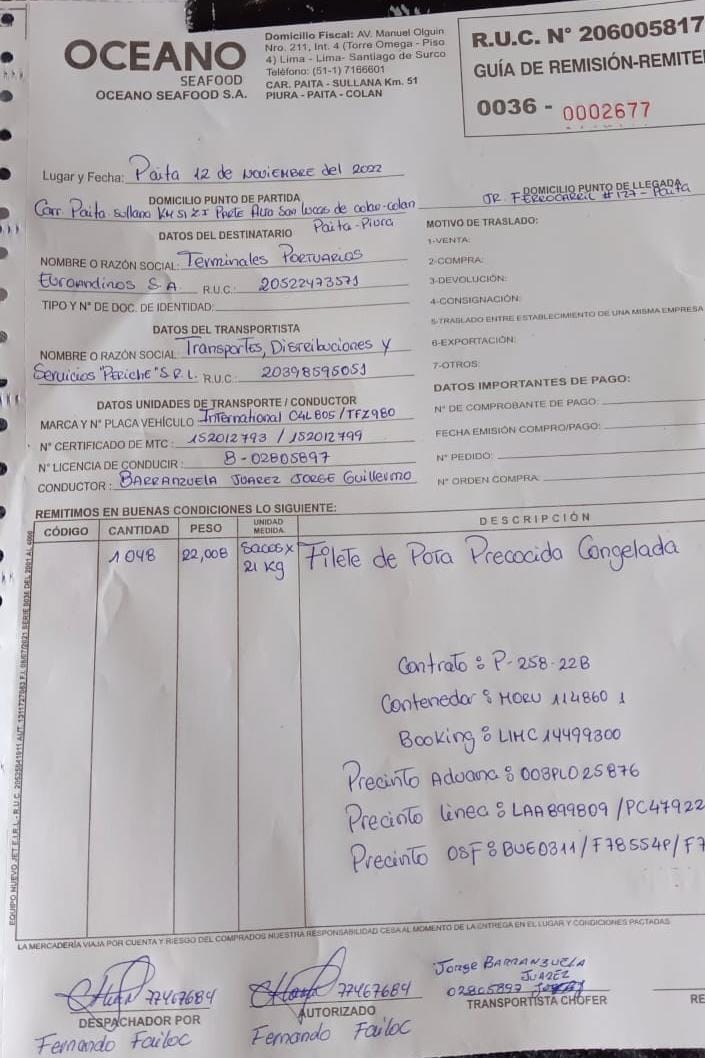 OCEANO
SEAFOOD
OCEANO SEAFOOD S.A.
Domicilio Fiscal: AV. Manuel Olguin
Nro. 211, Int. 4 (Torre Omega - Piso
4) Lima - Lima- Santiago de Surco
Teléfono: (51-1) 7166601
CAR. PAITA - SULLANA Km. 51
PIURA - PAITA - COLAN
R.U.C. N° 206005817
GUÍA DE REMISIÓN-REMITE
0036 - 0002677
Lugar y Fecha: Paita 12 de NOVIEMBRE del 2022
DOMICILIO PUNTO DE PARTIDA
Carr. Paita Sullana KM 51 Parte Alta San Lucas de colan-colan
Paita-Piura
DOMICILIO PUNTO DE LLEGADA
JR. FERROCARRIL #127 - Paita
DATOS DEL DESTINATARIO
NOMBRE O RAZÓN SOCIAL: Terminales PORTUARIOS
Euroandinos S.A. R.U.C.: 20522473571
TIPO Y N° DE DOC. DE IDENTIDAD:
DATOS DEL TRANSPORTISTA
NOMBRE O RAZÓN SOCIAL: Transportes, Disreibuciones y
Servicios "Periche" S.R.L. R.U.C.: 20398595051
DATOS UNIDADES DE TRANSPORTE / CONDUCTOR
MARCA Y N° PLACA VEHÍCULO International C4L 805 / TFZ980
N° CERTIFICADO DE MTC: 152012793 / 152012799
N° LICENCIA DE CONDUCIR: B-02805897
CONDUCTOR: BARRANZUELA JUAREZ JORGE Guillermo
MOTIVO DE TRASLADO:
1-VENTA:
2-COMPRA:
3-DEVOLUCIÓN:
4-CONSIGNACIÓN:
5-TRASLADO ENTRE ESTABLECIMIENTO DE UNA MISMA EMPRESA
6-EXPORTACIÓN:
7-OTROS:
DATOS IMPORTANTES DE PAGO:
N° DE COMPROBANTE DE PAGO:
FECHA EMISIÓN COMPRO/PAGO:
N° PEDIDO:
N° ORDEN COMPRA:
REMITIMOS EN BUENAS CONDICIONES LO SIGUIENTE:
CÓDIGO CANTIDAD PESO UNIDAD MEDIDA DESCRIPCIÓN
1048 22,008 Sacos x 21 Kg Filete de Pota Precocida Congelada
Contrato: P-258-22B
Contenedor: MORU 114860 1
Booking: LIMC 14499300
Precinto Aduana: 003PL025876
Precinto linea: LAA899809 /PC47922
Precinto OSF: BUE0311/F78554P/F7
LA MERCADERÍA VIAJA POR CUENTA Y RIESGO DEL COMPRADOS NUESTRA RESPONSABILIDAD CESA AL MOMENTO DE LA ENTREGA EN EL LUGAR Y CONDICIONES PACTADAS
77467684
DESPACHADOR POR
Fernando Failoc
77467684
AUTORIZADO
Fernando Failoc
Jorge BARRANZUELA
JUAREZ
02805897
TRANSPORTISTA CHOFER
RE